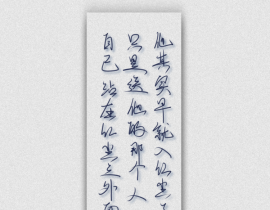 他其实早就入红尘
只是送他的那个人
自己站在红尘之外